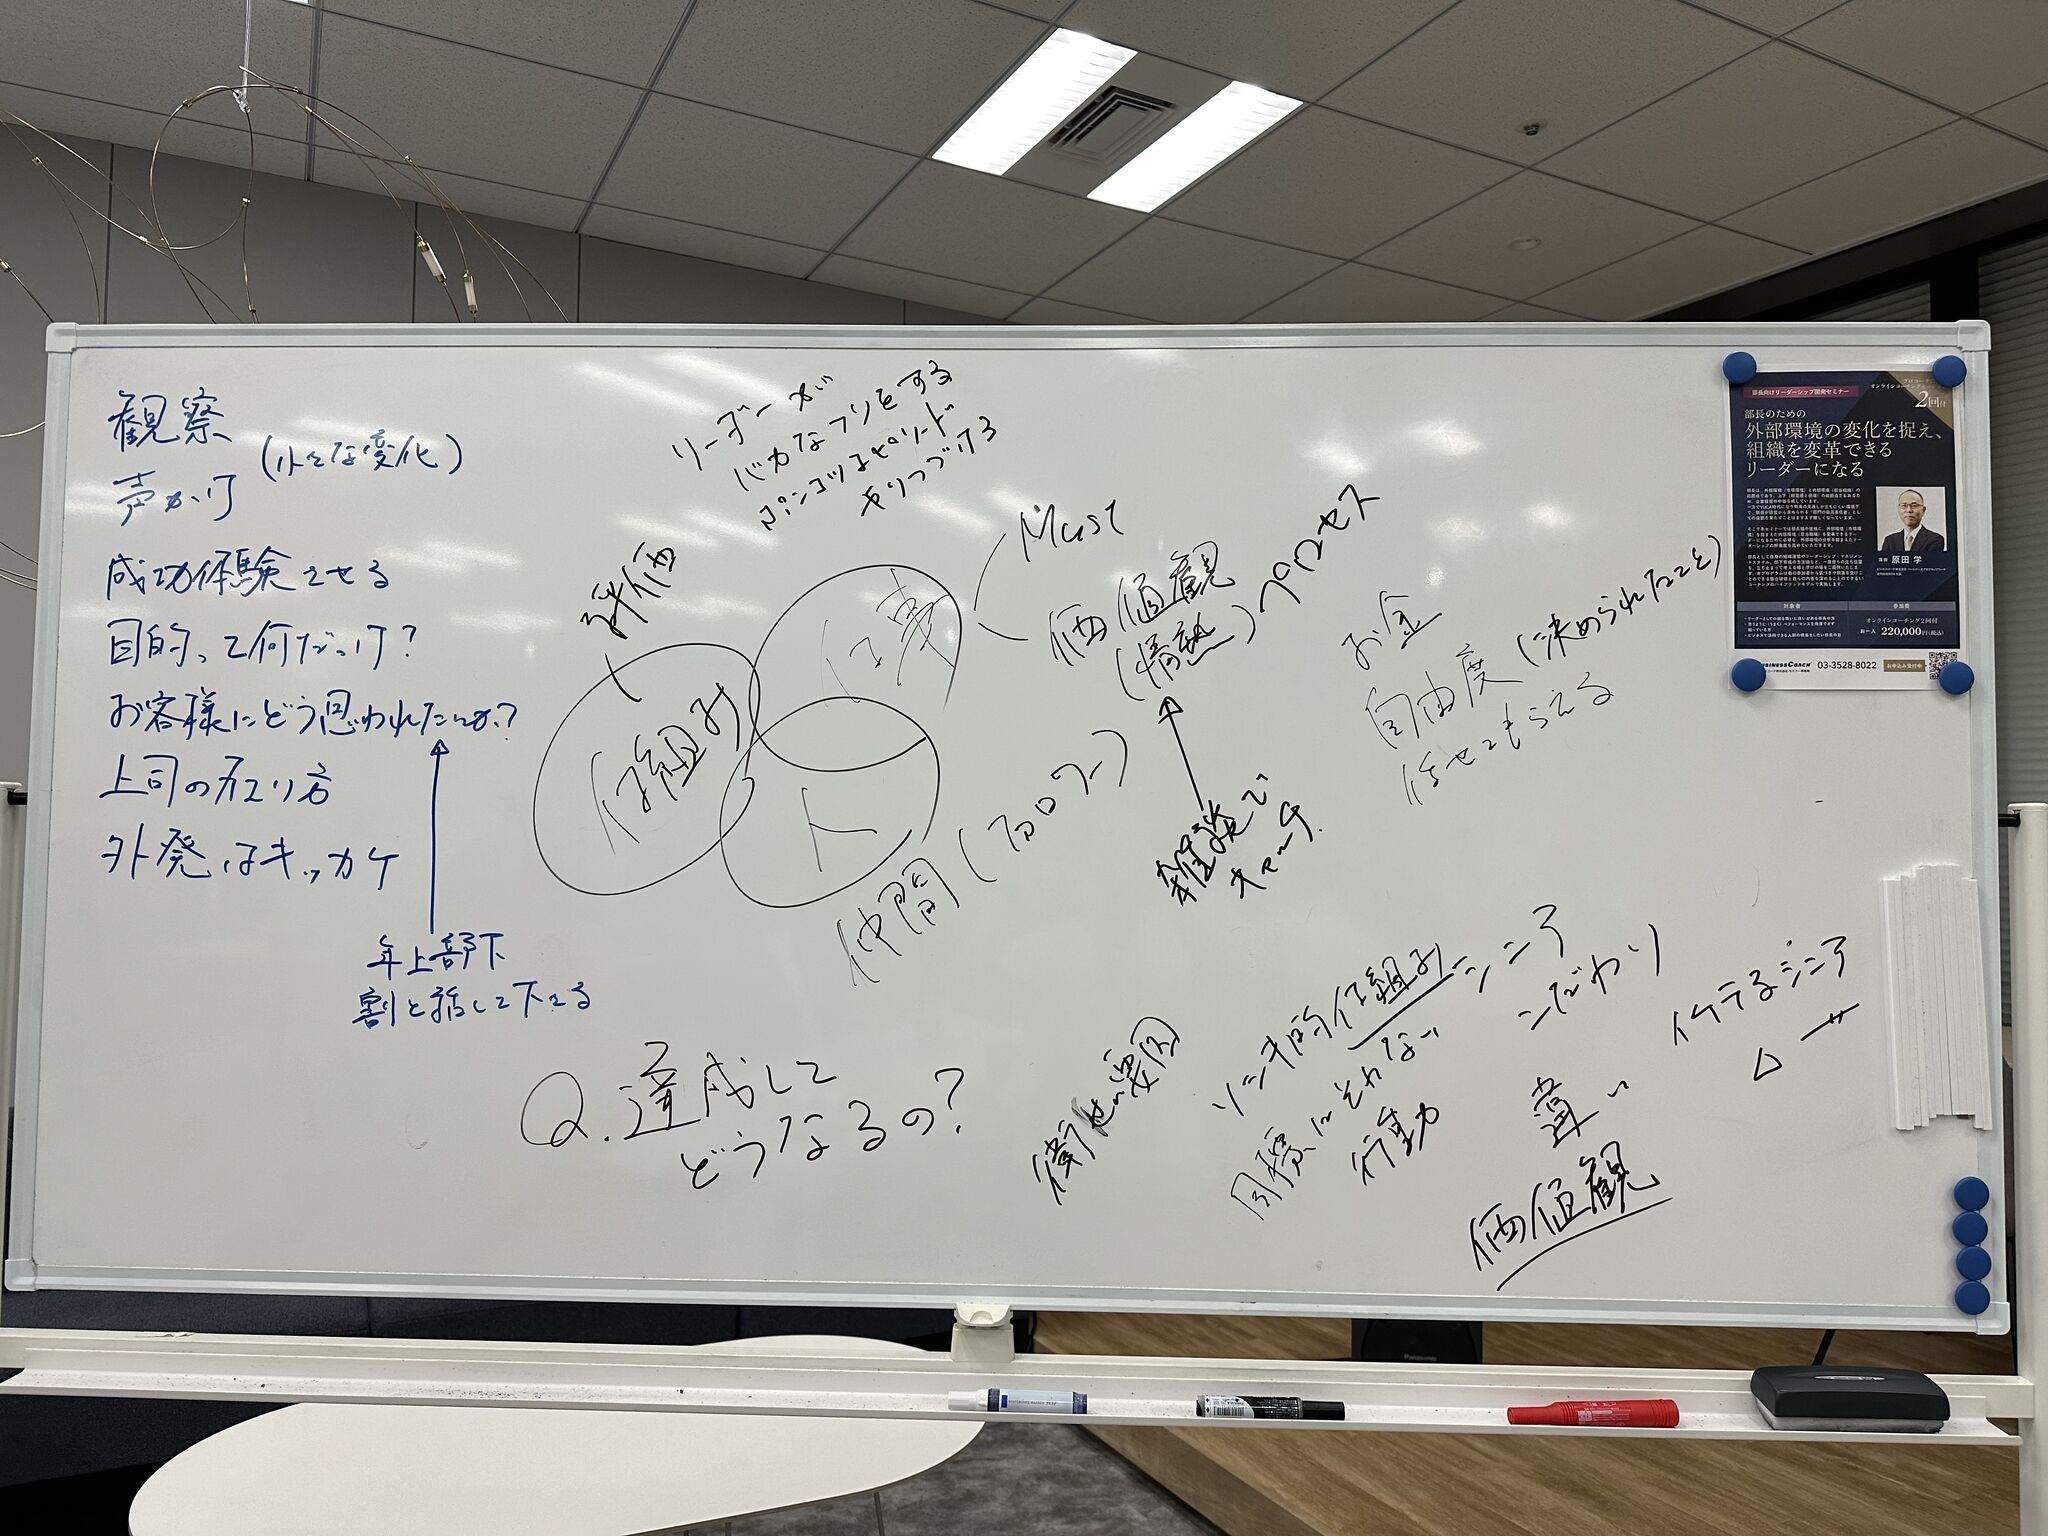 観察
声かけ (小さな変化)
成功体験させる
目的って何だっけ?
お客様にどう思われたいか?
上司の在り方
外発はキッカケ
年上部下
割と話して下さる
リーダーが
バカなフリをする
ポンコツエピソード
をリつづける
評価
仕組み
仕事
人
仲間(フォロワー)
Must
価値観
(情熱)プロセス
雑談で
キャッチ
お金
自由度(決められたこと)
任せてもらえる
Q.達成して
どうなるの?
衛生要因
ソシキ的仕組み
目標にそわない
行動
シニア
こだわり
違い
価値観
イケてるシニア
部長向けリーダーシップ開発セミナー
2回付
部長のための
外部環境の変化を捉え、
組織を変革できる
リーダーになる
講師 原田 学
対象者 参加費
オンラインコーチング2回付
お一人 220,000円(税込)
BUSINESSCOACH 03-3528-8022 お申込み受付中
Panasonic